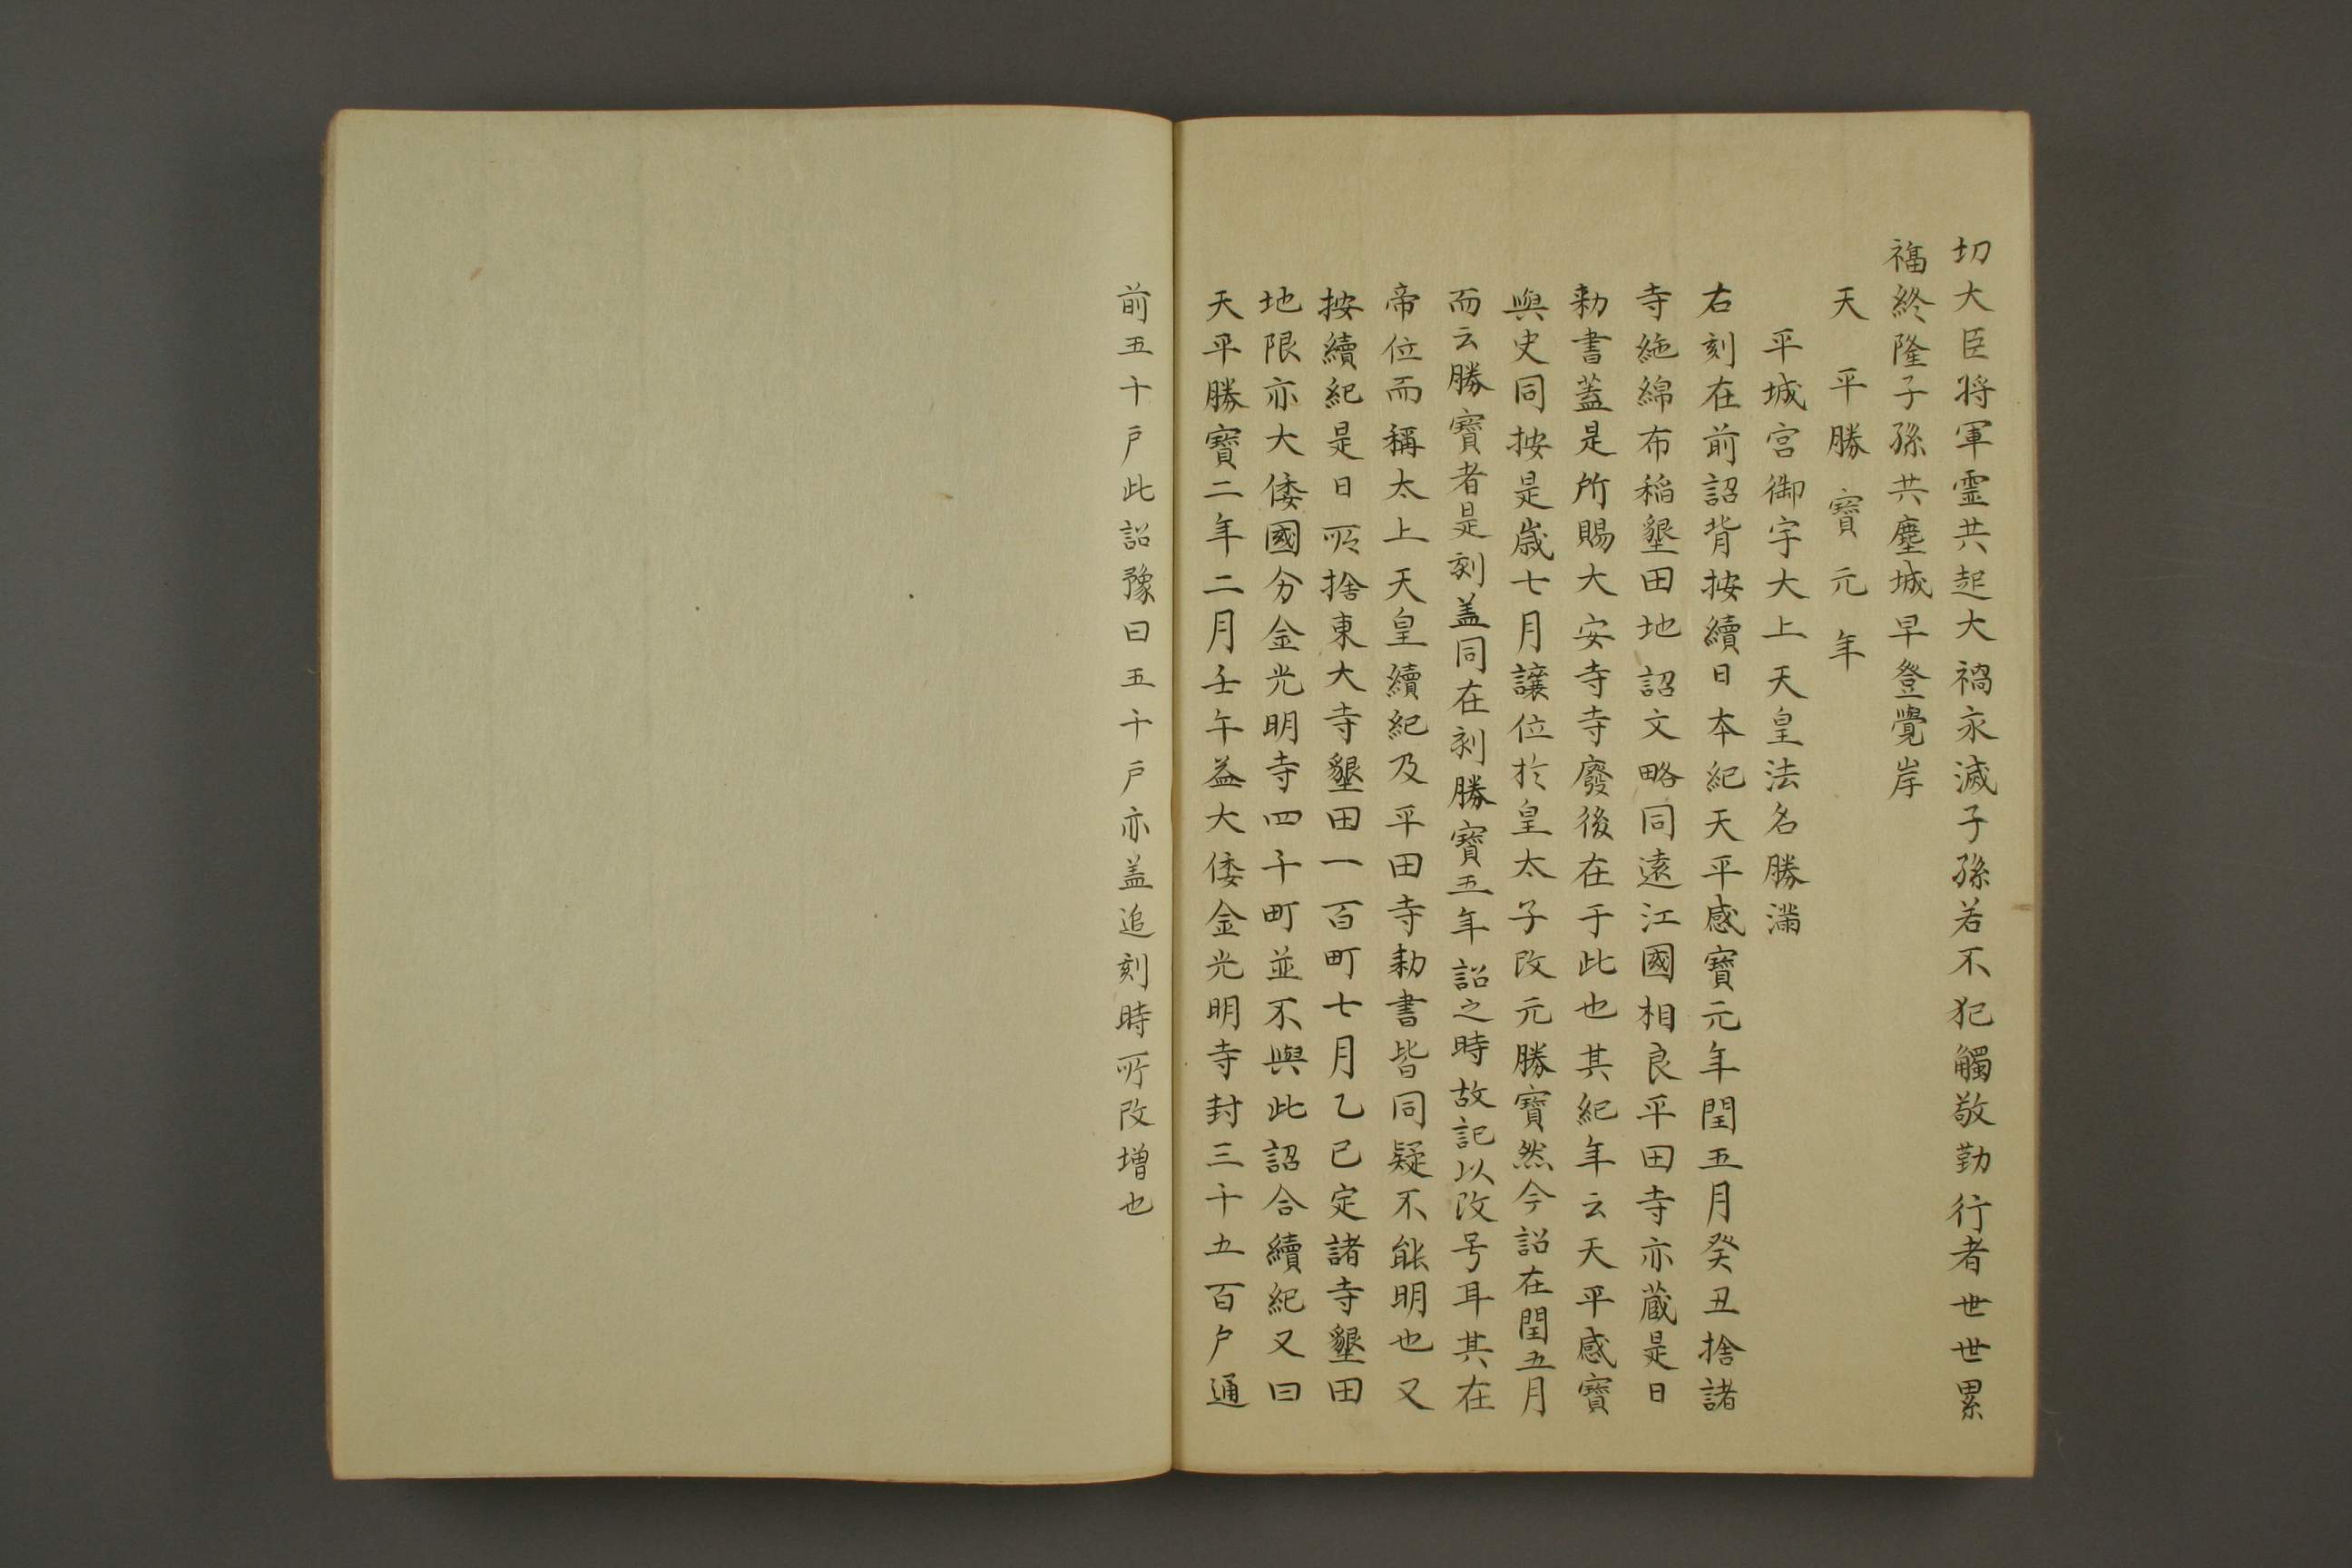 切大臣将軍霊共起大禍永滅子孫若不犯觸敬勤行者世世累
福終隆子孫共塵城早登覺岸
天平勝寶元年
平城宮御宇大上天皇法名勝滿
右刻在前詔背按續日本紀天平感寶元年閏五月癸丑捨諸
寺絁綿布稲墾田地詔文略同遠江國相良平田寺亦蔵是日
勅書蓋是所賜大安寺寺廢後在于此也其紀年云天平感寶
與史同按是歳七月讓位於皇太子改元勝寶然今詔在閏五月
而云勝寶者是刻盖同在刻勝寶五年詔之時故記以改号耳其在
帝位而稱太上天皇續紀及平田寺勅書皆同疑不能明也又
按續紀是日所捨東大寺墾田一百町七月乙巳定諸寺墾田
地限亦大倭國分金光明寺四千町並不與此詔合續紀又曰
天平勝寶二年二月壬午益大倭金光明寺封三千五百戸通
前五千戸此詔豫曰五千戸亦盖追刻時所改増也